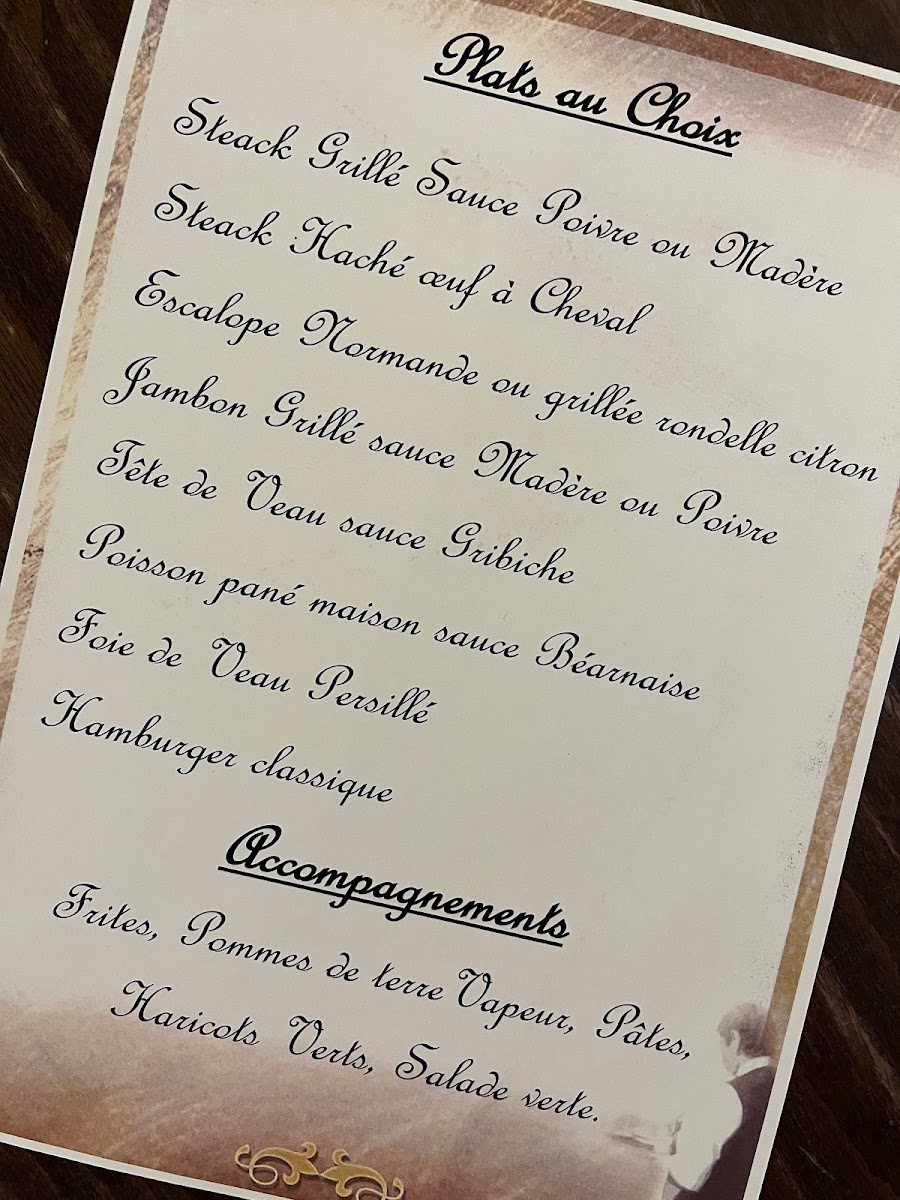 Plats au Choix
Steack Grillé Sauce Poivre ou Madère
Steack Haché œuf à Cheval
Escalope Normande ou grillée rondelle citron
Jambon Grillé sauce Madère ou Poivre
Tête de Veau sauce Gribiche
Poisson pané maison sauce Béarnaise
Foie de Veau Persillé
Hamburger classique
Accompagnements
Frites, Pommes de terre Vapeur, Pâtes,
Haricots Verts, Salade verte.